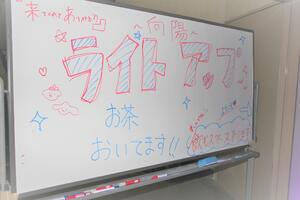 来てくれてありがとう
〜向陽〜
ライトアップ
お茶
おいてます!!